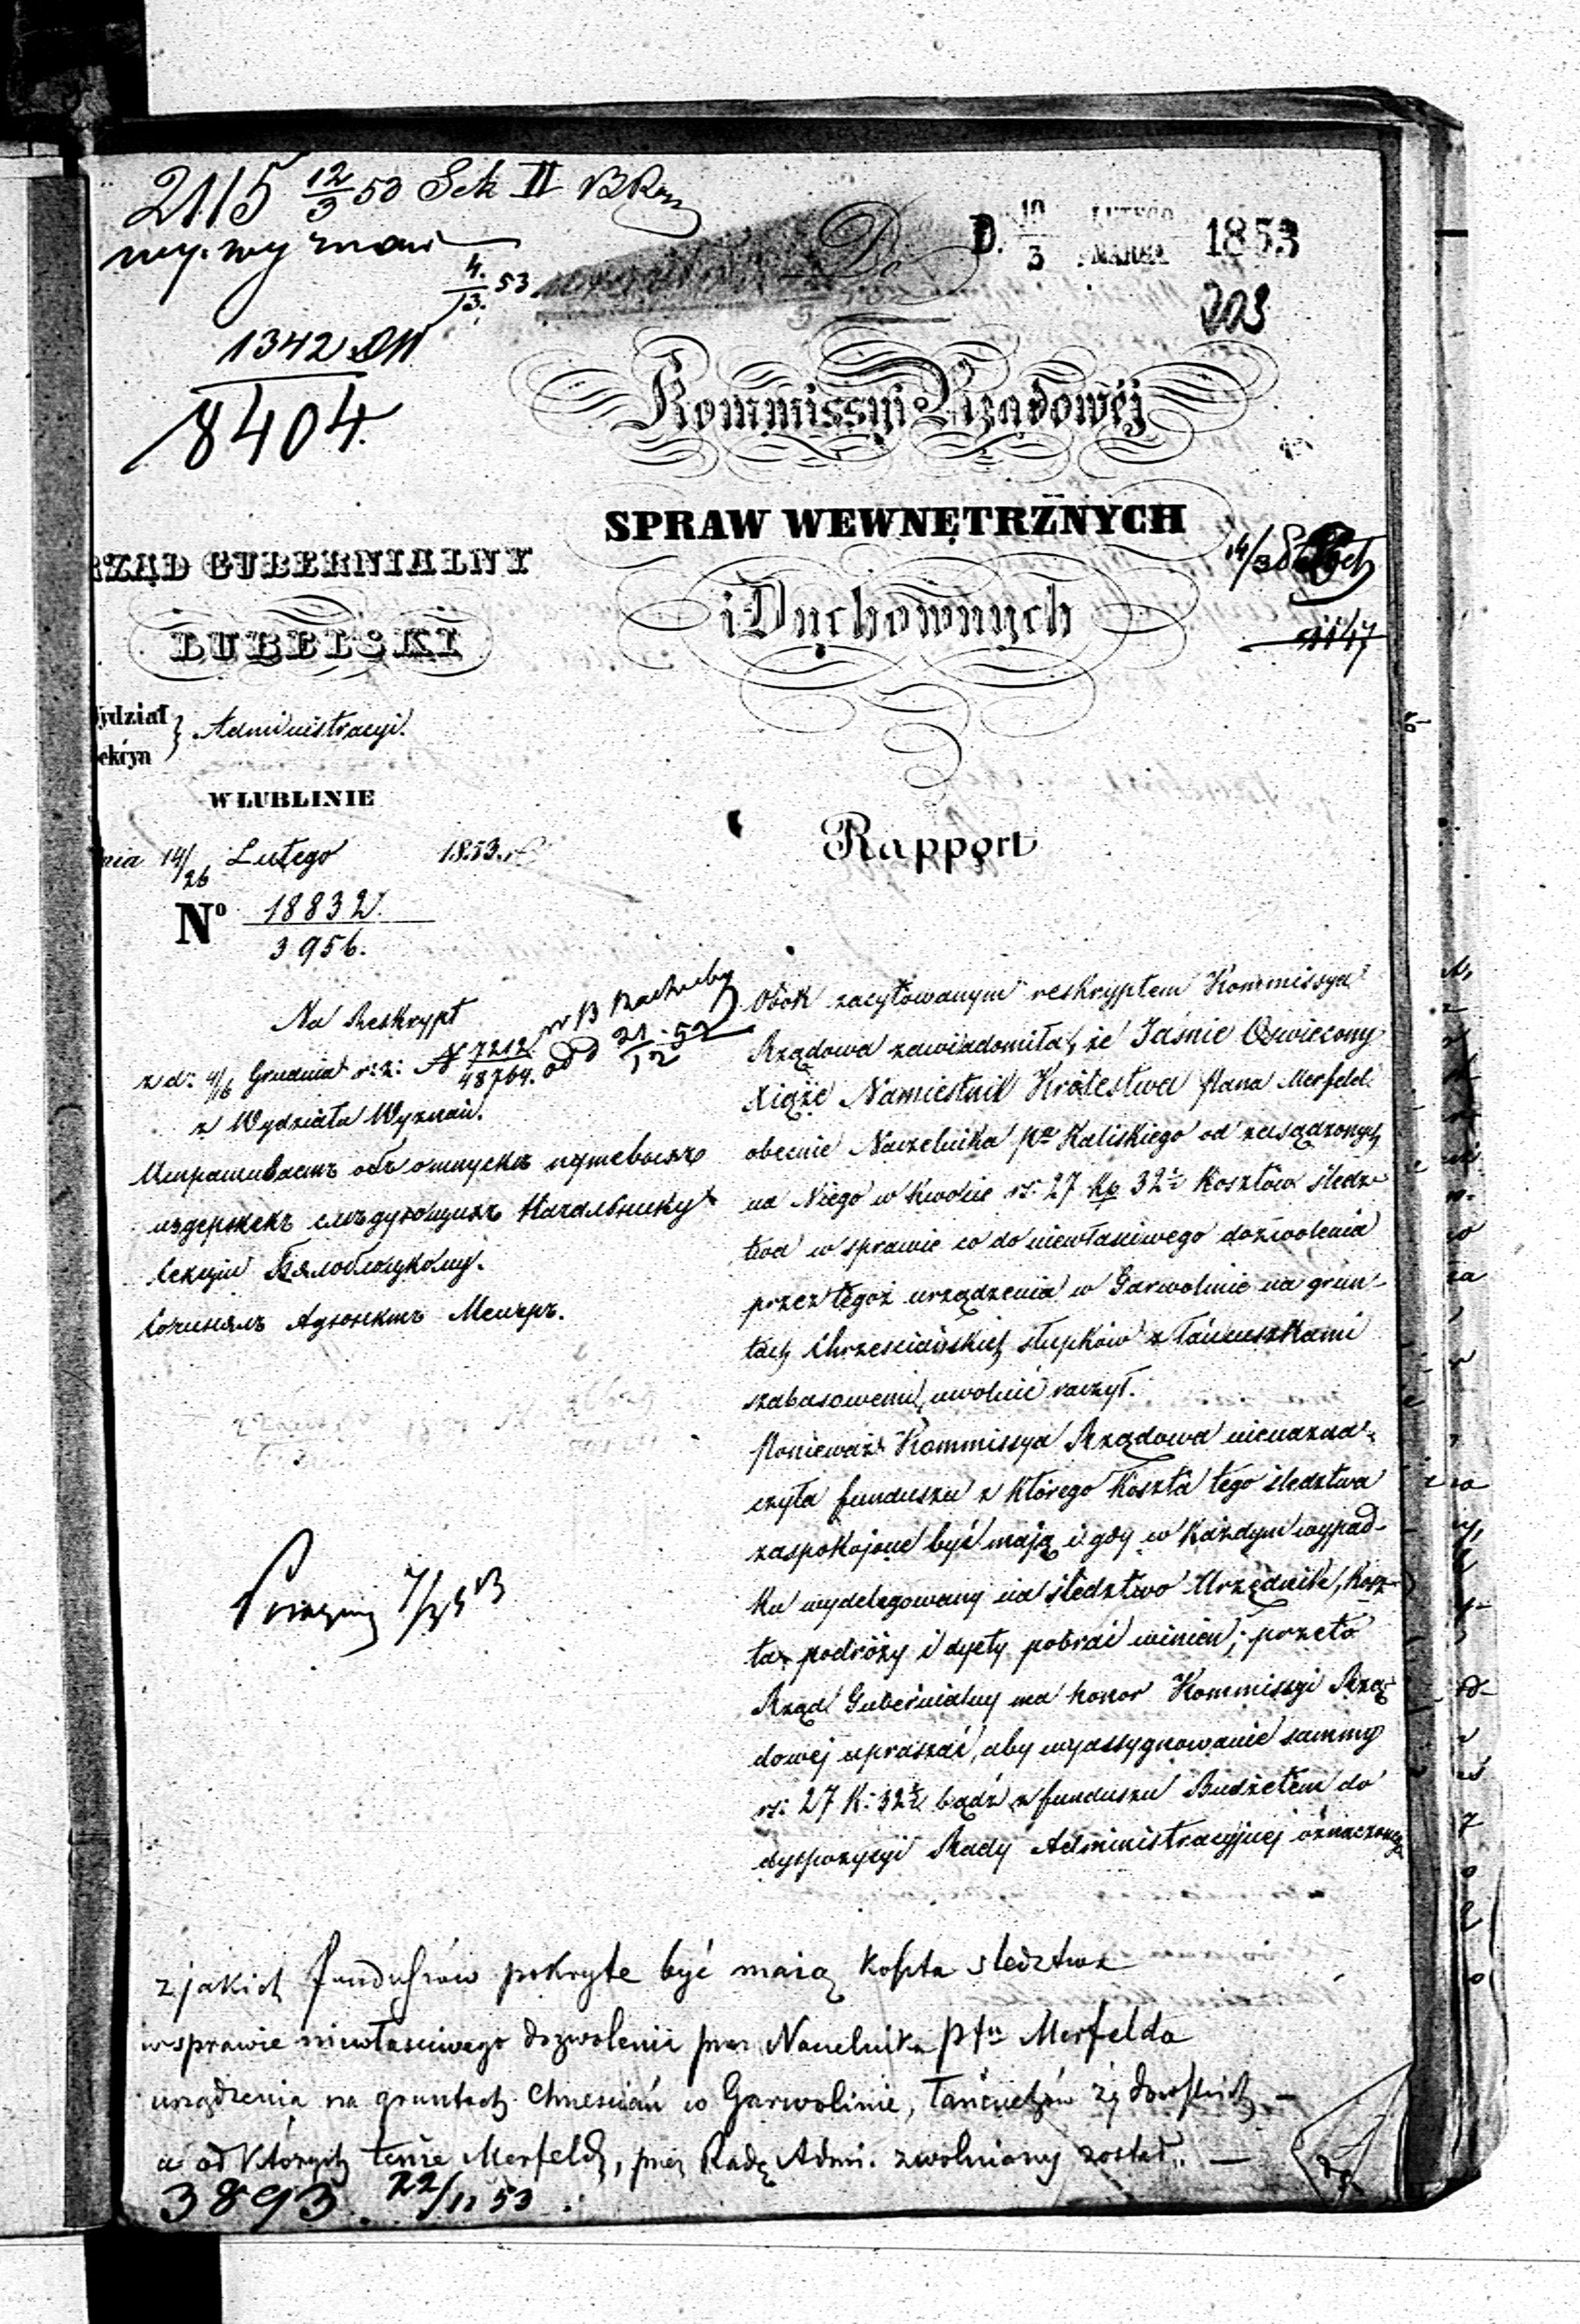 2115 12/3 53 Sek II
4/13. 53
1342
8404.
Do
D. 10/3 LUTEGO MARCA 1853
Kommissyi Rządowéj
SPRAW WEWNĘTRZNYCH
i Duchownych
RZĄD GUBERNIALNY
LUBELSKI
Wydział Administracyi.
Sekcya
W LUBLINIE
dnia 14/26 Lutego 1853. r
No 18832/3956.
Rapport
Na Reskrypt
z d: 4/6 Grudnia r: z: N 7212/48764. od 21/12 52
z Wydziału Wyznań.
Испрашиваетъ объ отпускѣ путевыхъ
издержекъ слѣдующихъ Начальнику
Секціи
Сочинялъ Адъюнктъ
Obok zacytowanym reskryptem Kommissya
Rządowa zawiadomiła, że Jaśnie Oświecony
Xiąże Namiestnik Królestwa Pana Merfeld
obecnie Naczelnika Ptu Kaliskiego od zasądzonych
na Niego w kwocie rs: 27 kp 32½ kosztów śledz-
twa w sprawie co do niewłaściwego dozwolenia
przez tegoż urządzenia w Garwolinie na grun-
tach Chrześciańskich słupków z łańcuszkami
szabasowemi, uwolnić raczył.
Ponieważ Kommissya Rządowa nienazna-
czyła funduszu z którego koszta tego śledztwa
zaspokojone być mają i gdy w każdym wypad-
ku wydelegowany na śledztwo Urzędnik, kosz-
ta podróży i dyety pobrać winien; przeto
Rząd Gubernialny ma honor Kommissyi Rzą-
dowej upraszać, aby wyassygnowanie summy
rs: 27 K: 32½ bądź z funduszu Budżetem do
dyspozycyi Rady Administracyjnej oznaczonego
z jakich funduszów pokryte być maią koszta sledztwa
w sprawie niewłasciwego dozwolenia przez Naczelnika Ptu Merfelda
urządzenia na gruntach Chrzescian w Garwolinie, łańcuchów żydowskich —
a od których tenże Merfeld, przez Radę Admi. zwolniony został. —
3893. 22/11 53.